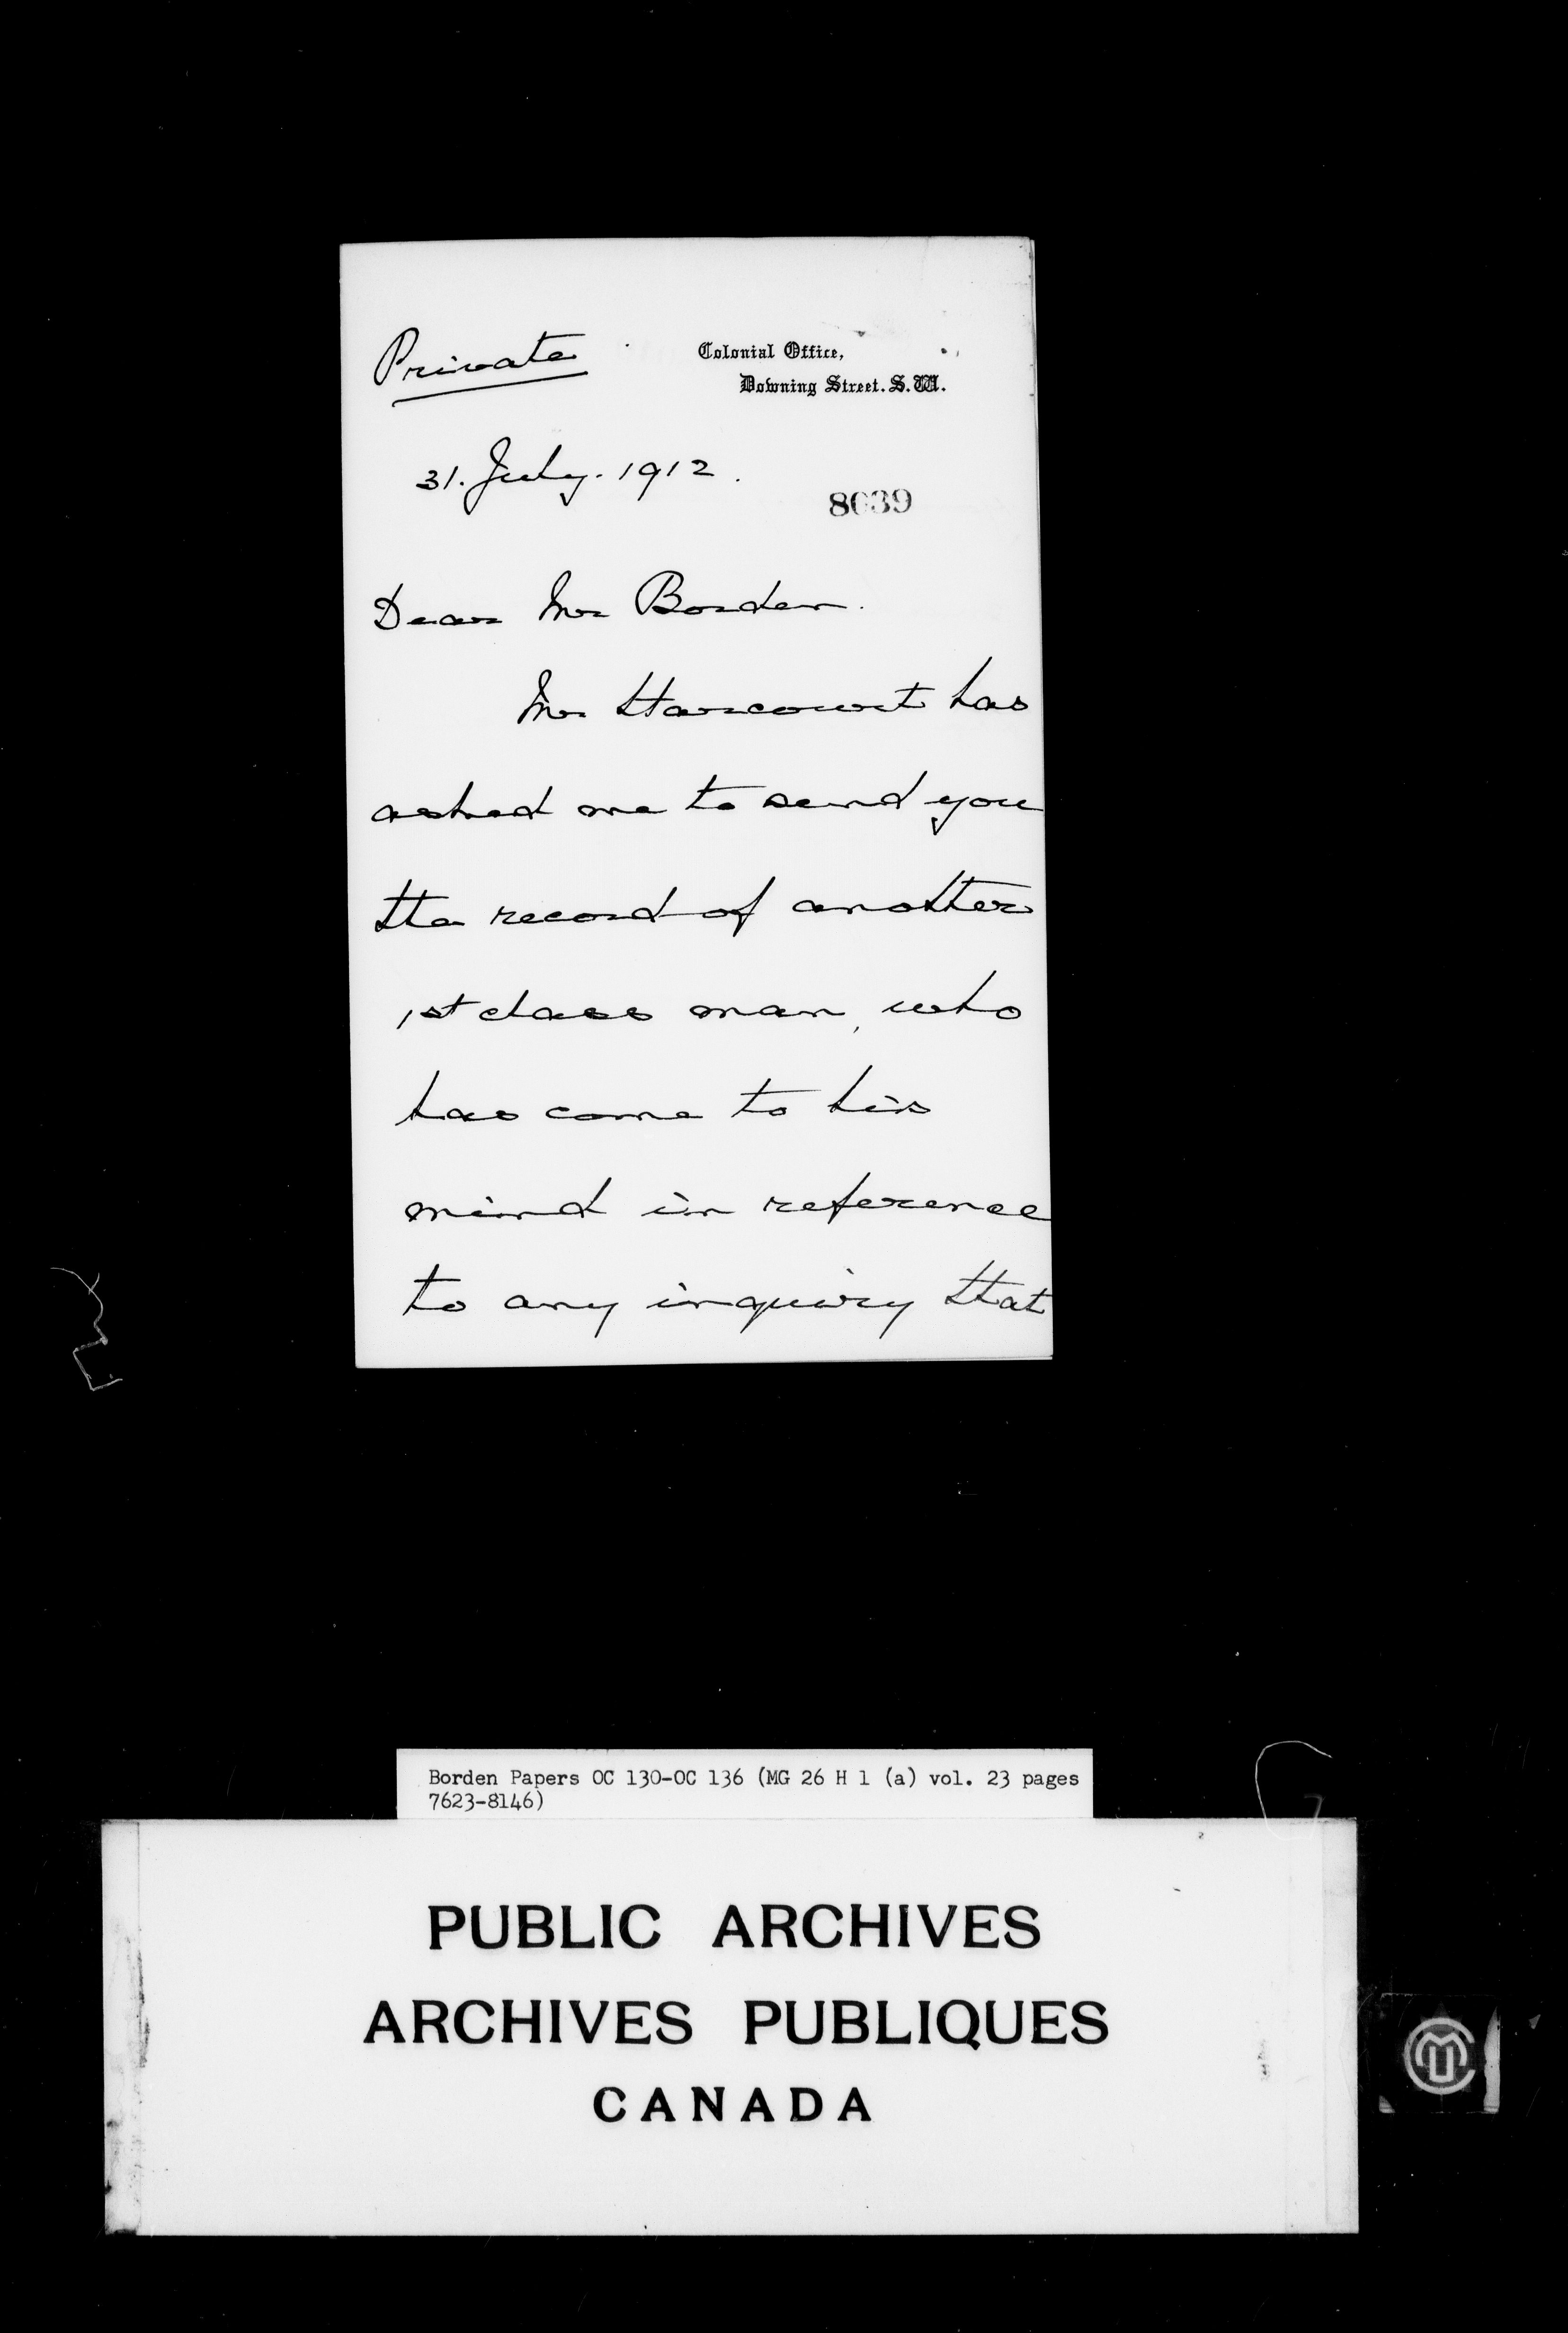 Private
Colonial Office,
Downing Street. S.W.
31. July. 1912.
8039
Dear Mr Borden.
Mr Harcourt has
asked me to send you
the record of another
1st class man, who
has come to his
mind in reference
to any inquiry that
Borden Papers OC 130-OC 136 (MG 26 H 1 (a) vol. 23 pages
7623-8146)
PUBLIC ARCHIVES
ARCHIVES PUBLIQUES
CANADA